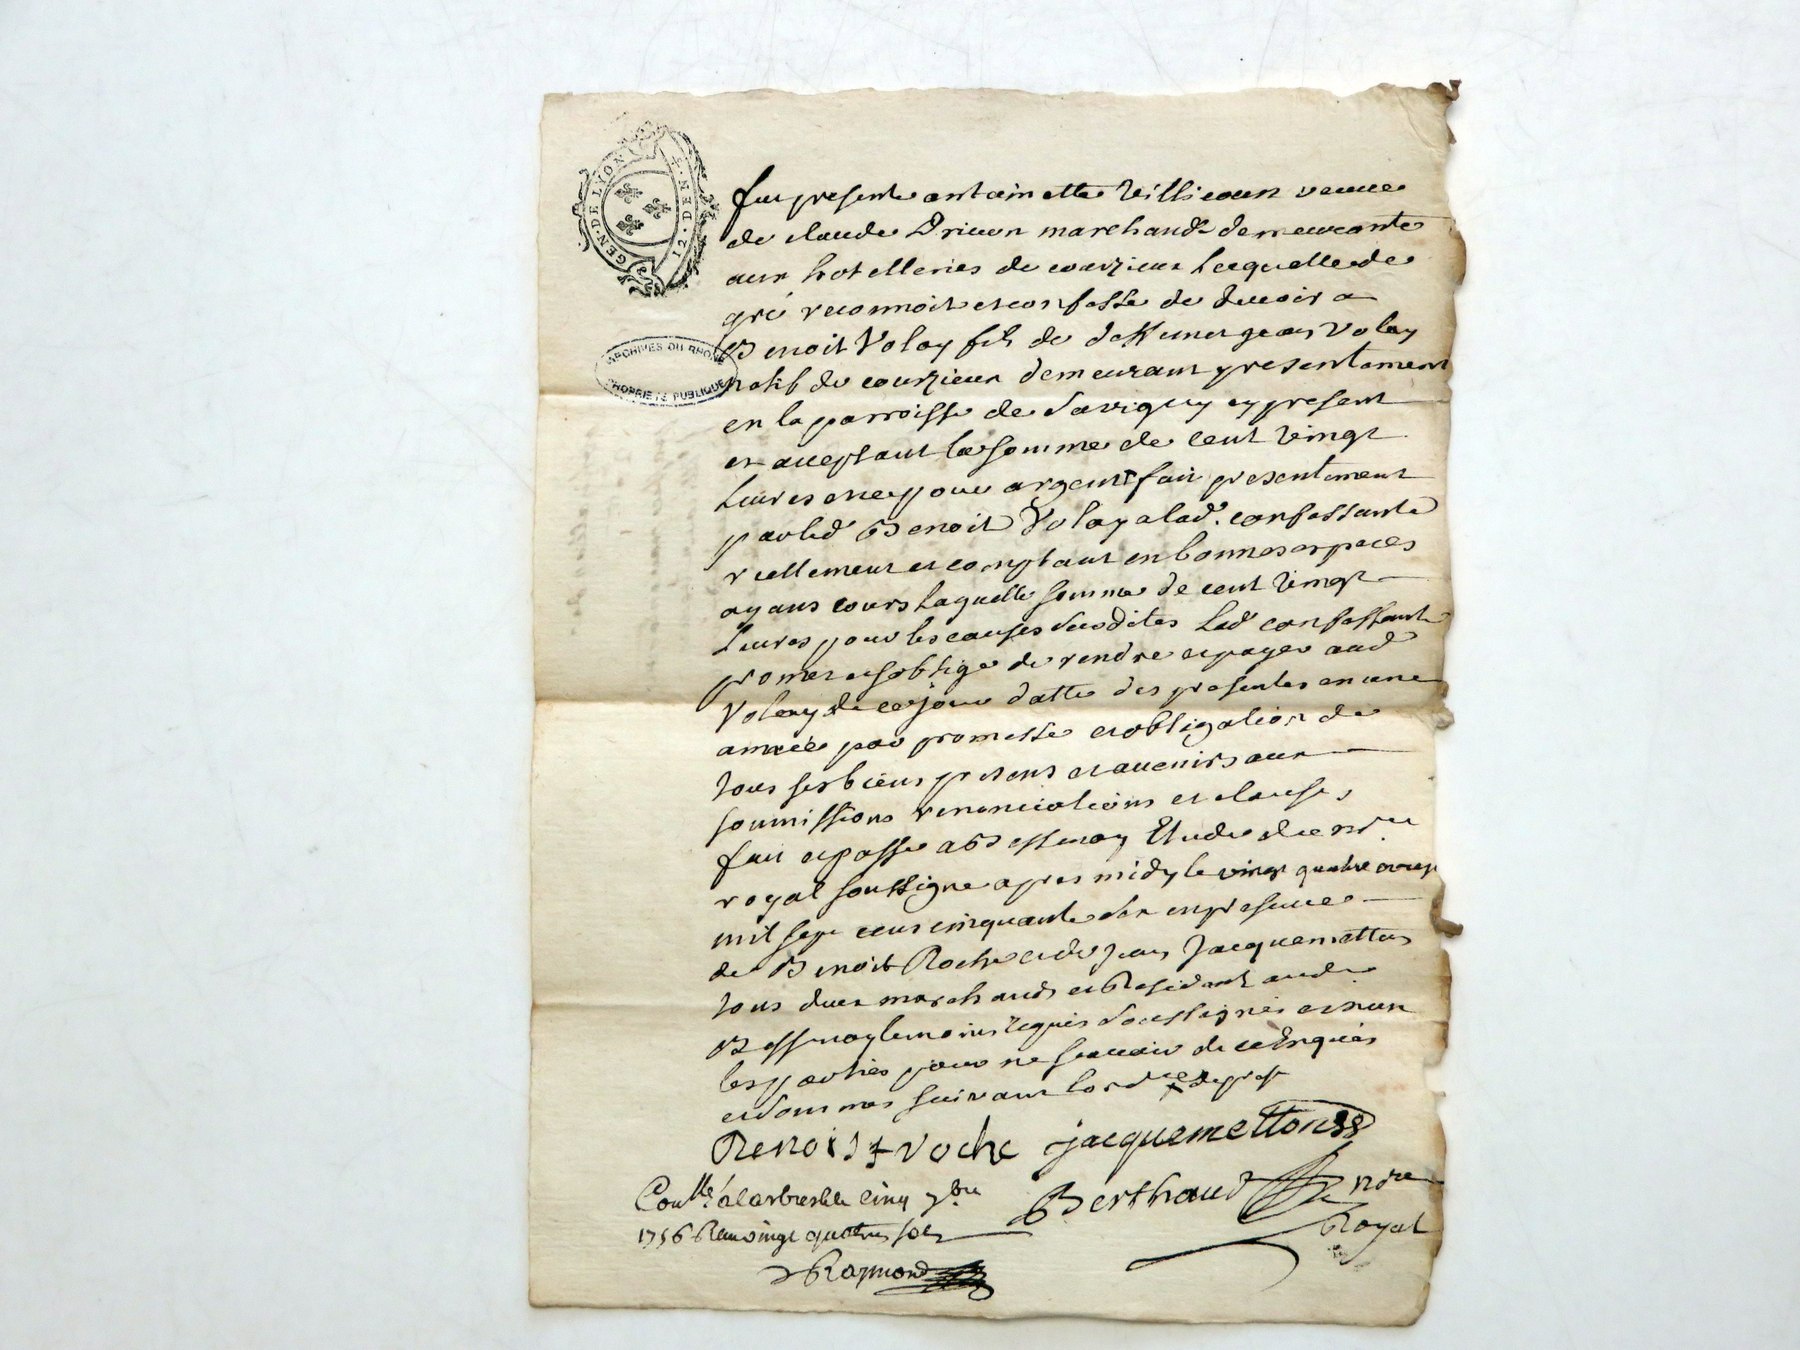 GEN·DE LYON
12·DEN·4
ARCHIVES DU RHONE
PROPRIETE PUBLIQUE
fut presente antoinette veuue
de claude marchand demeurante
aux hotelleries de courzieux Laquelle de
gré reconnoit et confesse de deuoir a
Benoit Volay fils de deffunct jean Volay
natif de courzieux demeurant presentement
en la parroisse de Savigny cy present
et acceptant la somme de cent vingt
Liures argent fait presentement
par led Benoit Volay a lad. confessante
reellement et comptant en bonnes especes
ayans cours Laquelle somme de cent vingt
Liures pour les causes susdites Lad confessante
promet et soblige de rendre et payer aud
Volay de ce jour datte des presentes en une
année par promesse et obligation de
tous ses biens presens et auenirs aux
soumissions renonciations et clauses
fait et passé a Bessenay Etude du nore
royal soussigne apres midy le vingt quatre
mil sept cent cinquante six en presence
de Benoit Roche et de jean Jacquemetton
tous deux marchands et Residant aud
Bessenay temoins requis soussignés et non
les parties pour ne scauoir de ce Enquis
et sommes suivant lord
Benoist roche jacquemetton
Berthaud nore
Royal
Conllé a larbresle le cinq 7bre
1756 Reçu vingt quatre sols
Raymond